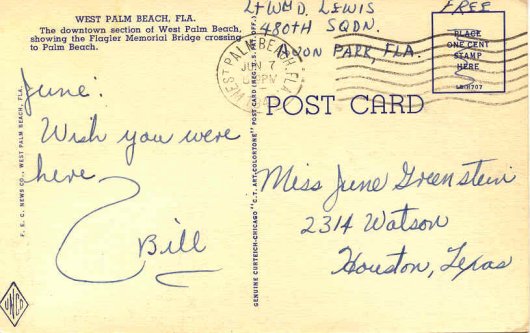 WEST PALM BEACH, FLA.
The downtown section of West Palm Beach,
showing the Flagler Memorial Bridge crossing
to Palm Beach.
June:
Wish you were
here
Bill
F. E. C. NEWS CO., WEST PALM BEACH, FLA.
GENUINE CURTEICH-CHICAGO "C.T. ART-COLORTONE" POST CARD (REG. U.S. PAT. OFF.)
LT WM D. LEWIS
480TH SQDN.
AVON PARK, FLA.
FREE
WEST PALM BEACH, FLA.
JUN 7
PM
PLACE
ONE CENT
STAMP
HERE
POST CARD
Miss June Greenstein
2314 Watson
Houston, Texas